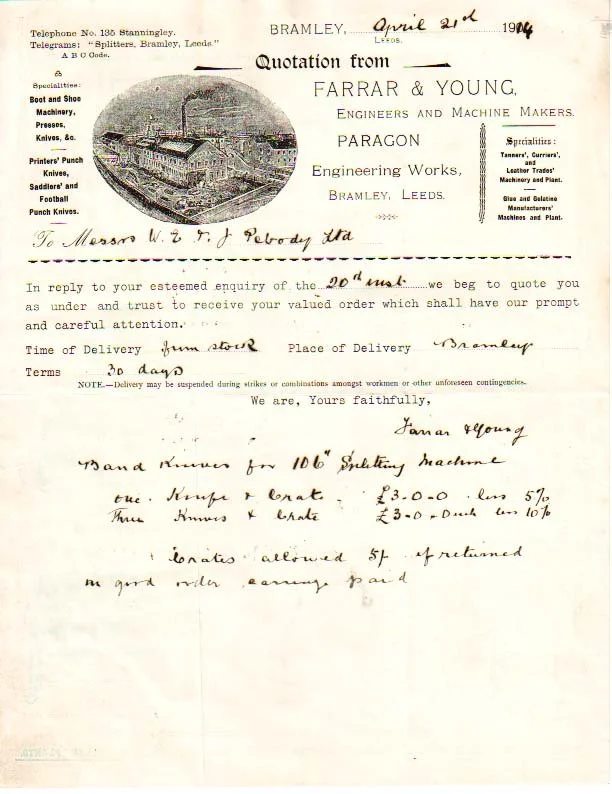 Telephone No. 135 Stanningley.
Telegrams: "Splitters, Bramley, Leeds."
A B C Code.
BRAMLEY, April 21st 1914
LEEDS.
Quotation from
FARRAR & YOUNG,
ENGINEERS AND MACHINE MAKERS.
PARAGON
Engineering Works,
BRAMLEY, LEEDS.
&
Specialities:
Boot and Shoe
Machinery,
Presses,
Knives, &c.
Printers' Punch
Knives,
Saddlers' and
Football
Punch Knives.
Specialities:
Tanners', Curriers',
and
Leather Trades'
Machinery and Plant.
Glue and Gelatine
Manufacturers'
Machines and Plant.
To Messrs W. E & J Pebody Ltd
In reply to your esteemed enquiry of the 20th inst we beg to quote you
as under and trust to receive your valued order which shall have our prompt
and careful attention.
Time of Delivery from stock Place of Delivery Bramley
Terms 30 days
NOTE.—Delivery may be suspended during strikes or combinations amongst workmen or other unforeseen contingencies.
We are, Yours faithfully,
Farrar & Young
Band Knives for 106" Splitting Machine
one. Knife & Crate - £3-0-0 less 5%
Three Knives & Crate £3-0-0 each less 10%
Crates allowed 5/- if returned
in good order carriage paid